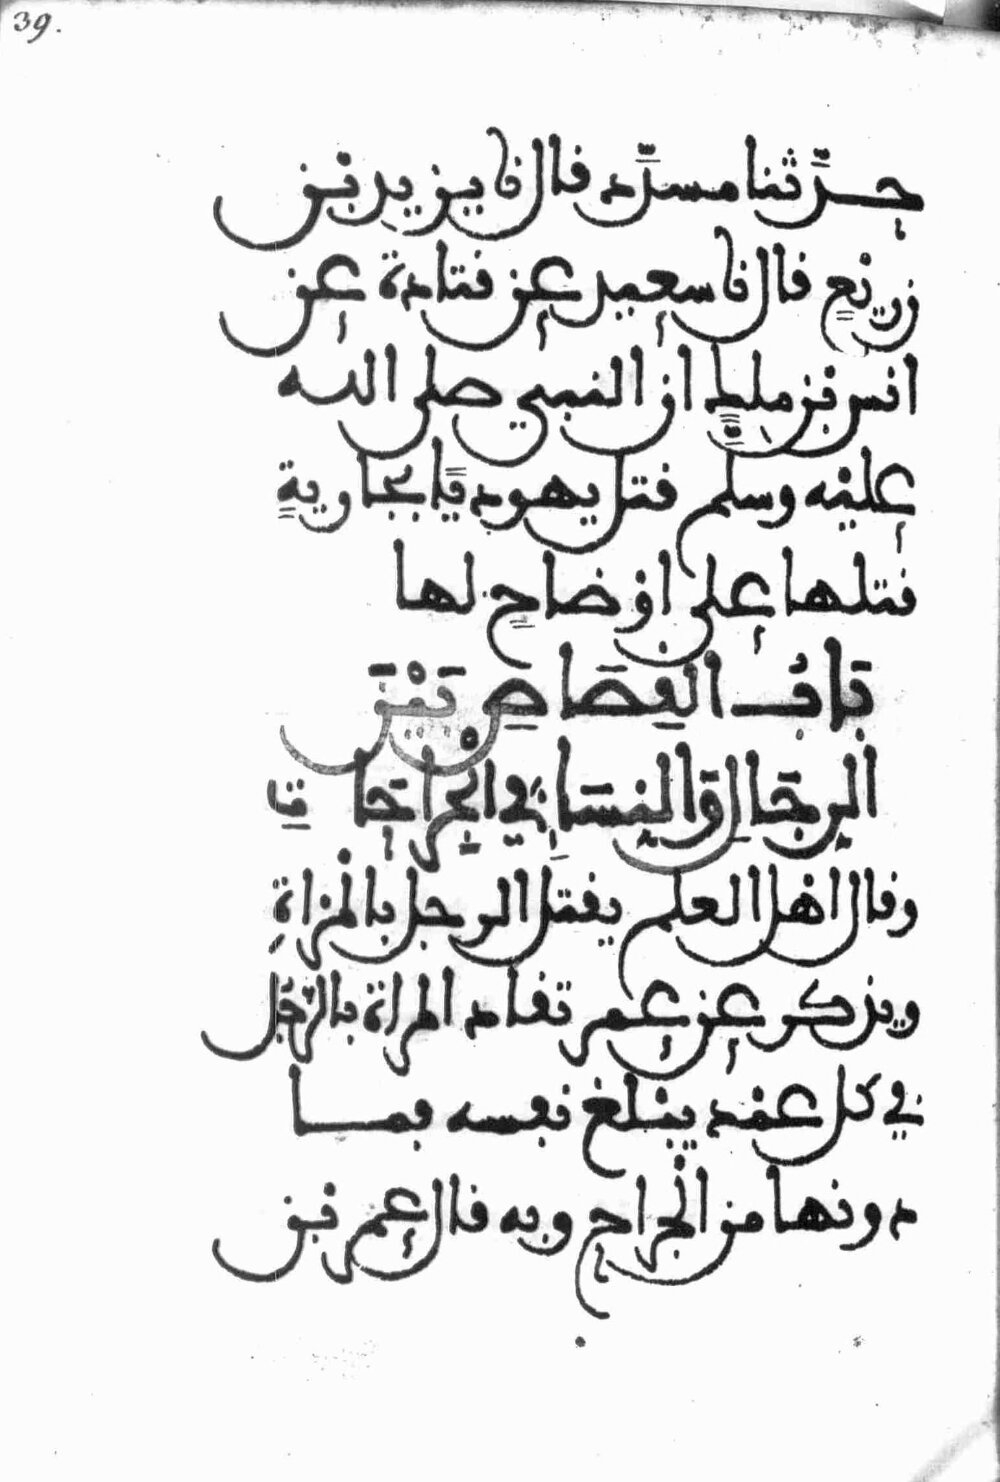 39.
حدثنا مسدد قال نا يزيد بن
زريع قال نا سعيد عن قتادة عن
انس بن ملك ان النبي صلى الله
عليه وسلم قتل يهوديا بجارية
قتلها على اوضاح لها
باب القصاص بين
الرجال والنساء في الجراحات
وقال اهل العلم يقتل الرجل بالمراة
ويذكر عن عمر تقاد المراة بالرجل
في كل عمد يبلغ نفسه فما
دونها من الجراح وبه قال عمر بن